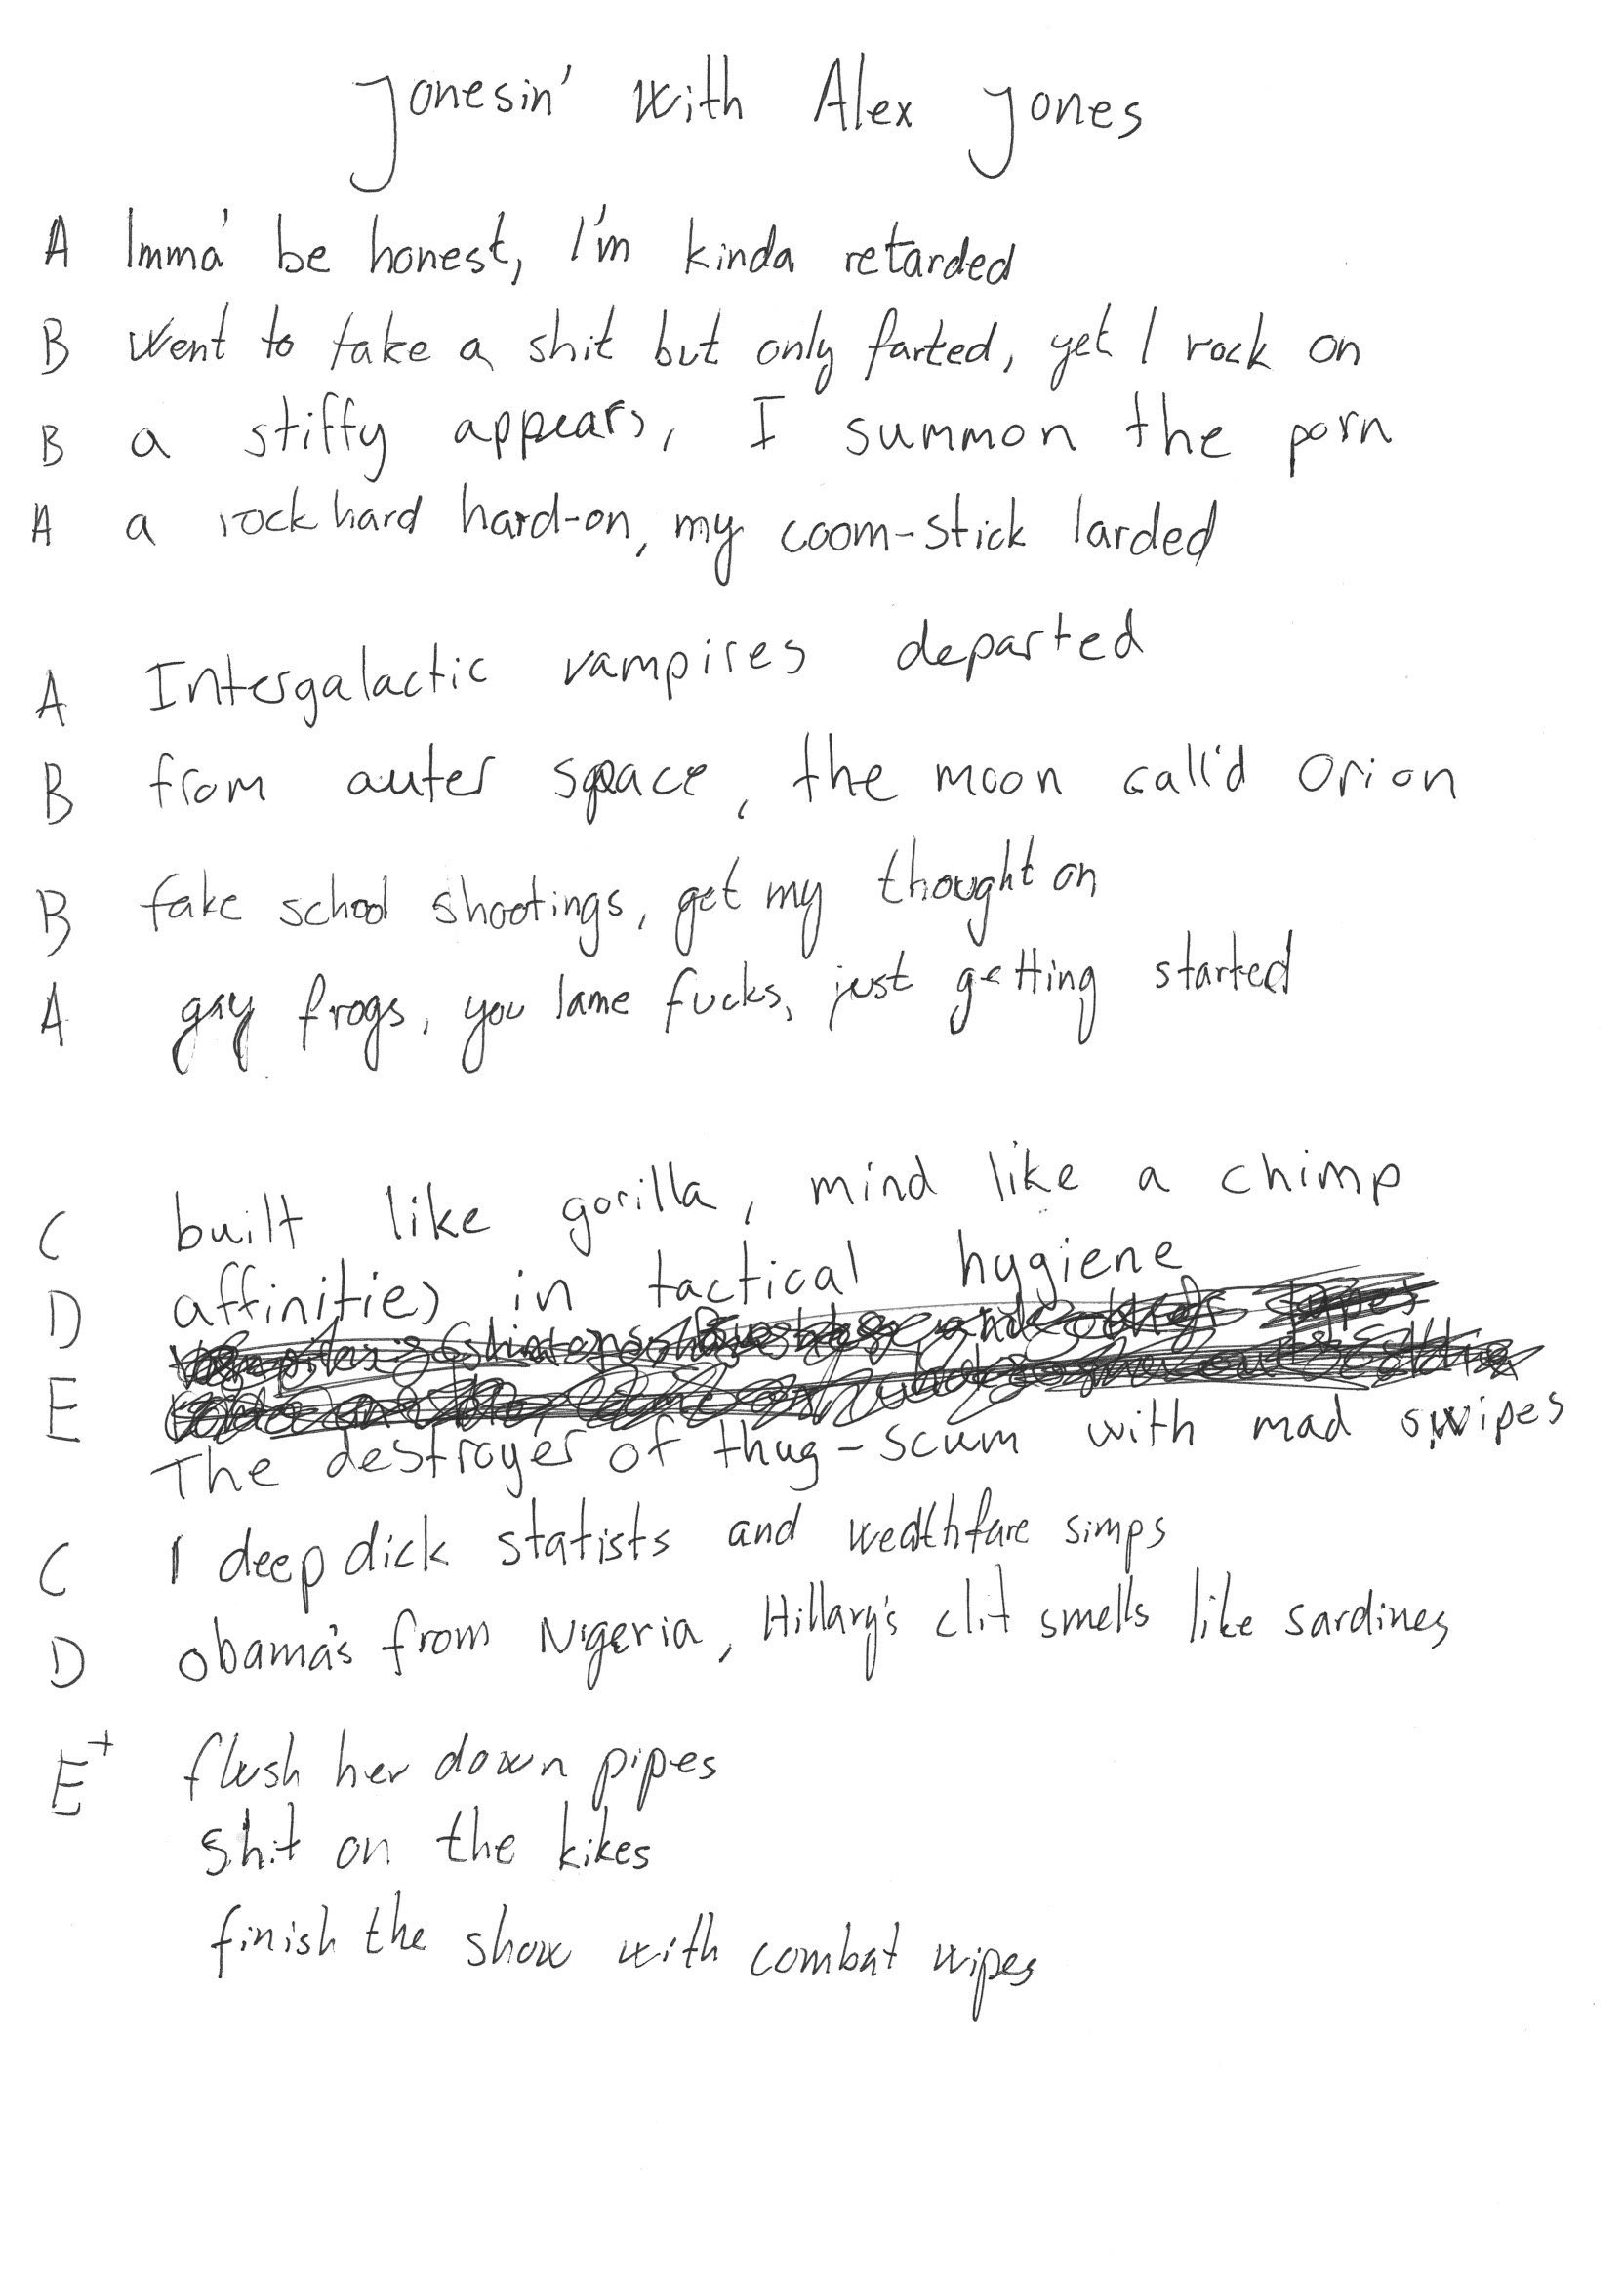 Jonesin' with Alex Jones
A Imma' be honest, I'm kinda retarded
B Went to take a shit but only farted, yet I rock on
B a stiffy appears, I summon the porn
A a rock hard hard-on, my coom-stick larded
A Intergalactic vampires departed
B from outer space, the moon call'd Orion
B fake school shootings, get my thought on
A gay frogs, you lame fucks, just getting started
C built like gorilla, mind like a chimp
D affinities in tactical hygiene
E
The destroyer of thug-scum with mad swipes
C I deep dick statists and wealthfare simps
D Obama's from Nigeria, Hillary's clit smells like sardines
E+ flush her down pipes
shit on the kikes
finish the show with combat wipes